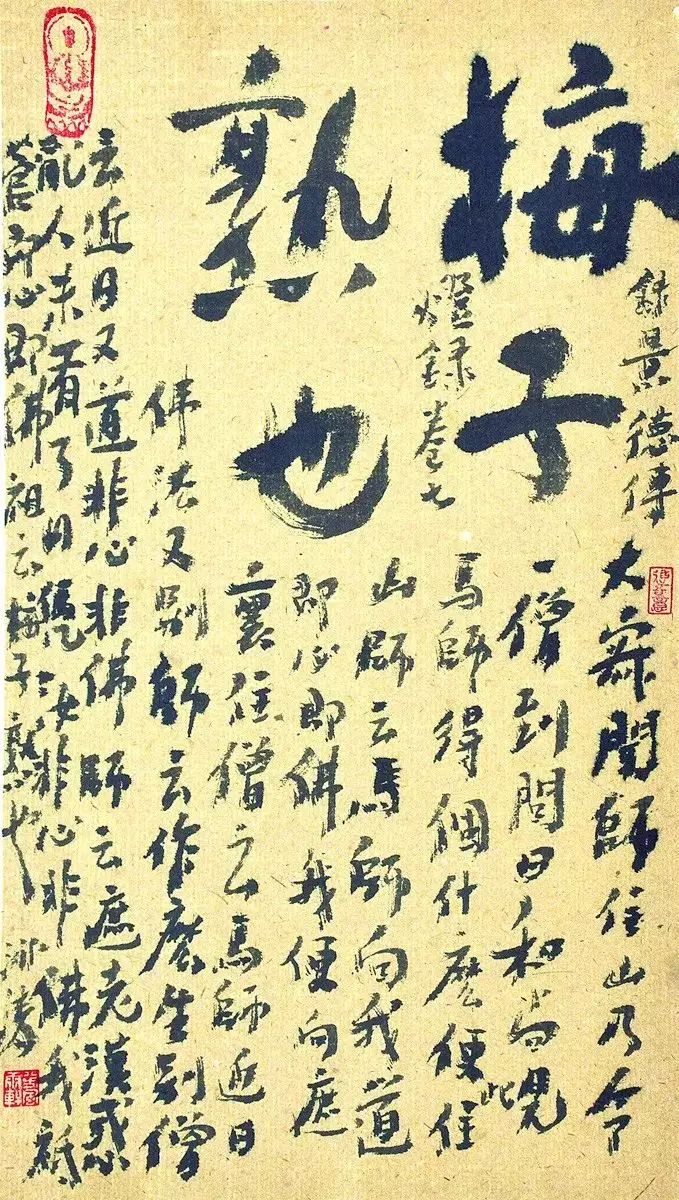 梅子
熟也
錄景德傳
燈録卷七
大寂聞師住山乃令
一僧到問曰和尚見
馬師得個什麼便住此
山師云馬師向我道
即心即佛我便向遮
裏住僧云馬師近日
佛法又別師云作麼生別僧
云近日又道非心非佛師云遮老漢惑
亂人未有了日憑汝非心非佛我祗
管即心即佛祖云梅子熟也